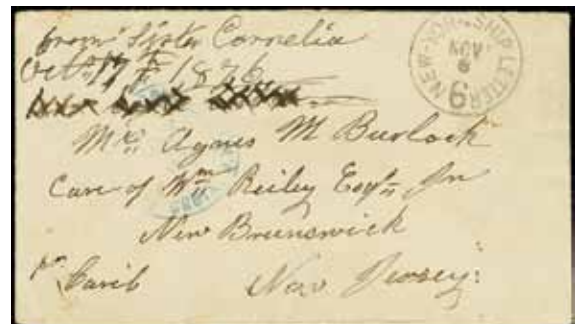 from Sister Cornelia
Oct. 17th 1876
NEW-YORK SHIP LETTER
NOV
6
6
Mrs Agnes M Burlock
Care of Wm Reiley Esqr Jn
New Brunswick
per Carib New Jersey.